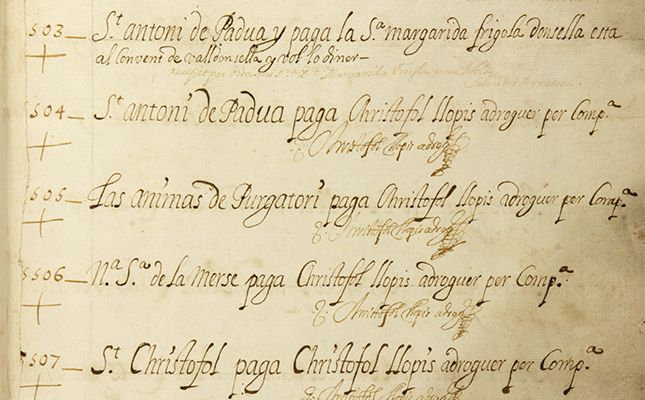 503 — S.t antoni de Padua y paga la S.ª margarida frigola donsella esta
al Convent de valldonsella y vol lo diner —
504 — S.t antoni de Padua paga Christofol llopis adroguer per Comp.ª
Christofol llopis adrog.r
505 — Las animas de Purgatori paga Christofol llopis adroguer per Comp.ª
Christofol llopis adrog.r
506 — N.ª S.ª de la Merse paga Christofol llopis adroguer per Comp.ª
Christofol llopis adrog.r
507 — S.t Christofol paga Christofol llopis adroguer per Comp.ª
Christofol llopis adrog.r